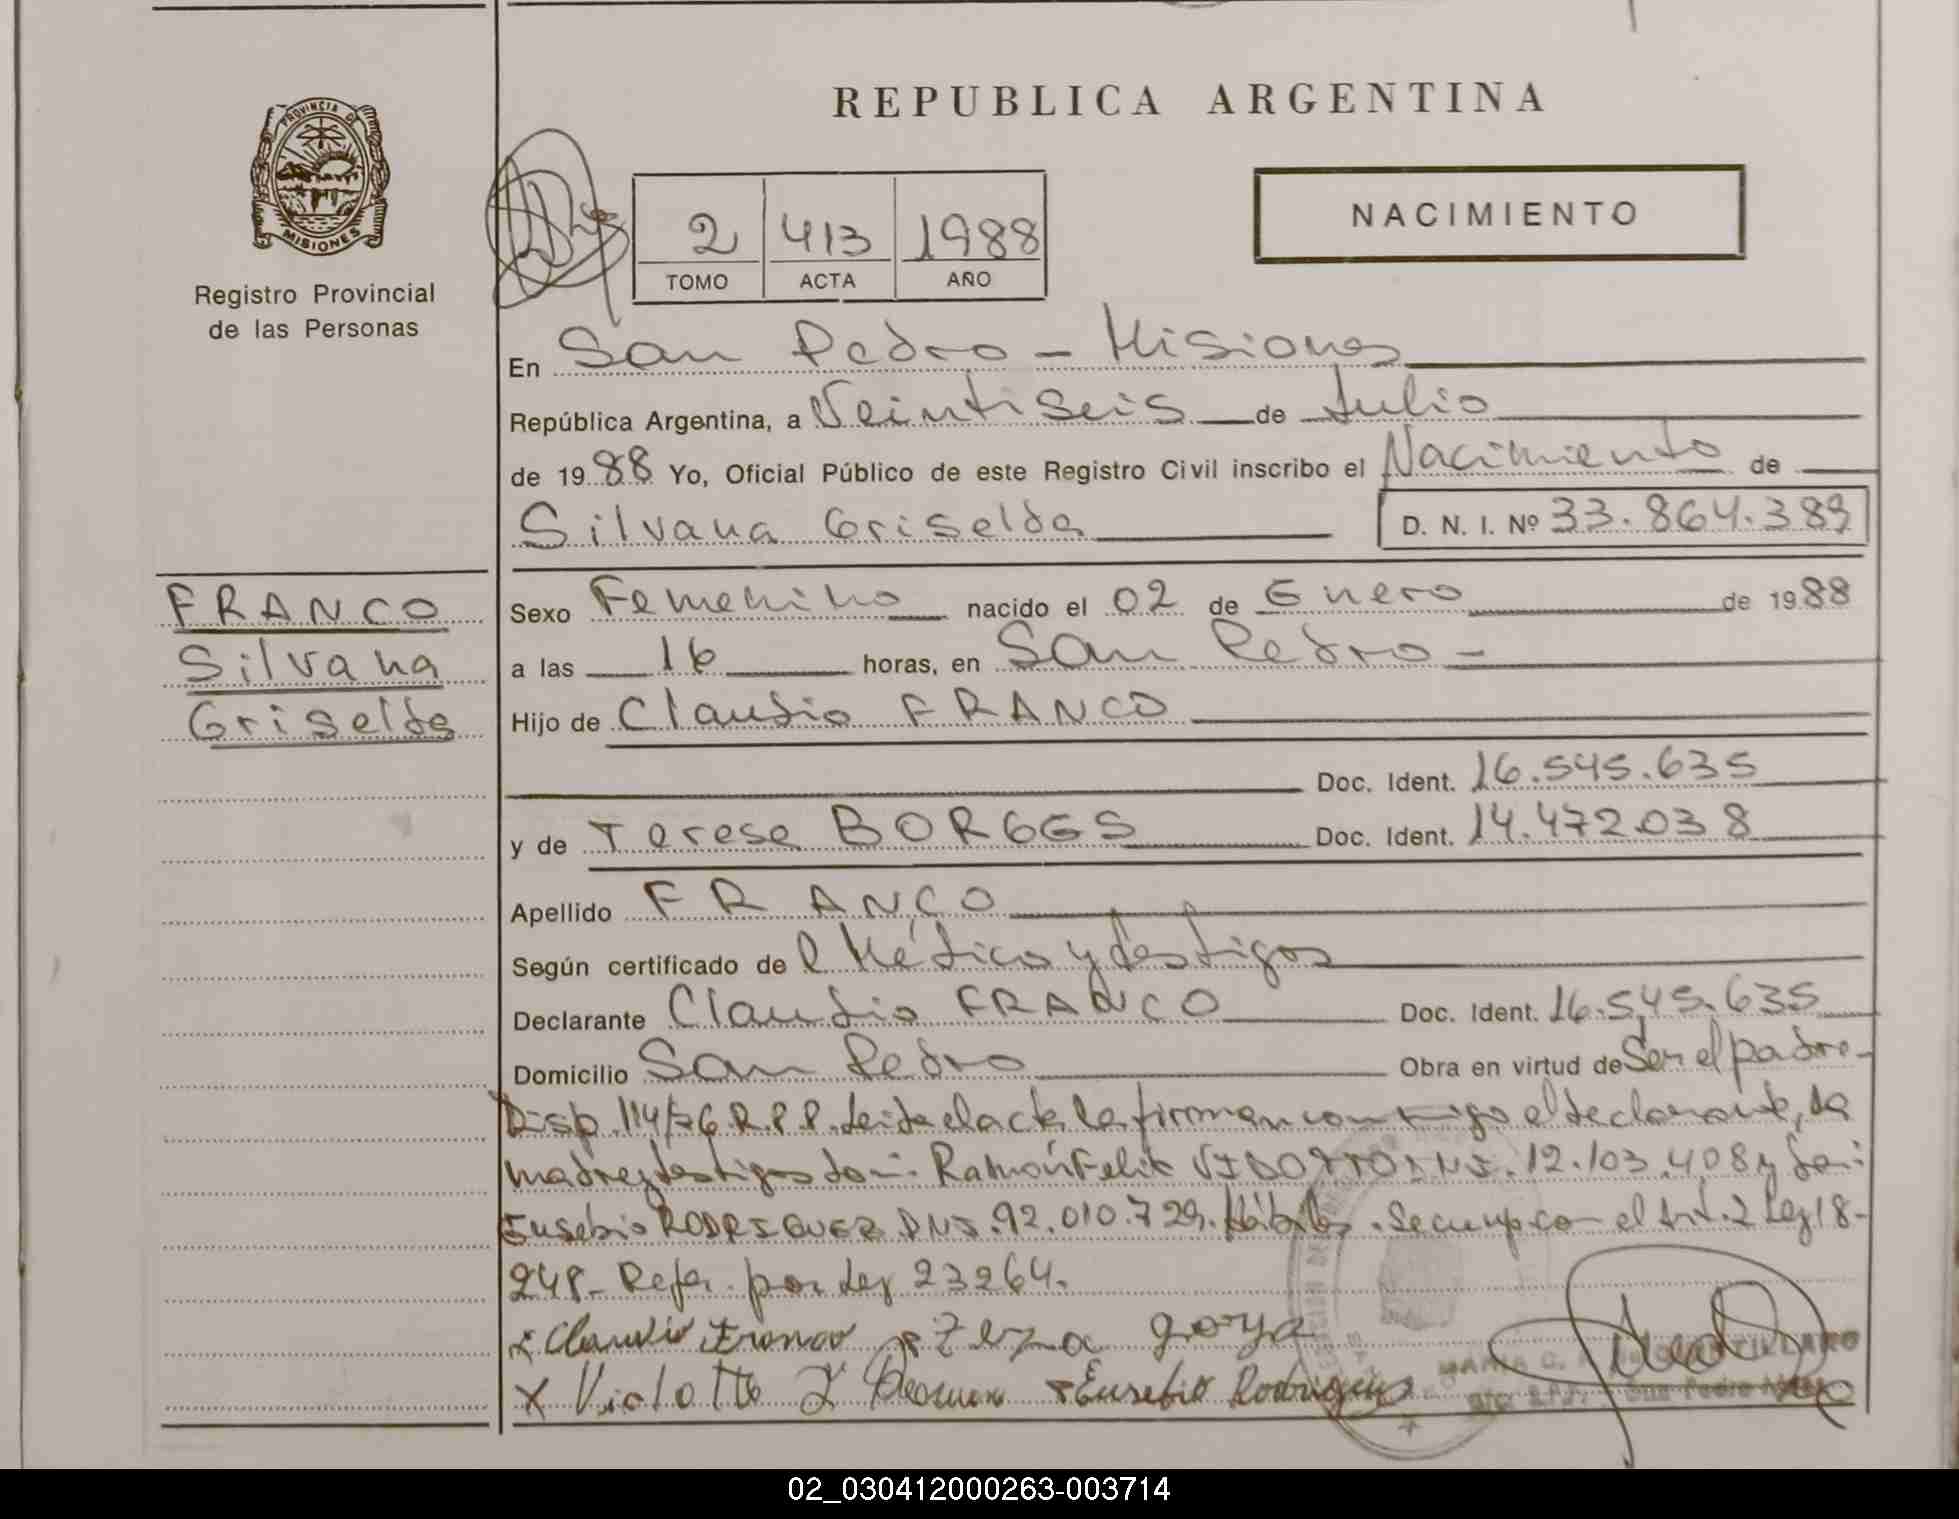 REPUBLICA ARGENTINA
PROVINCIA DE
MISIONES
Registro Provincial
de las Personas
2 413 1988
TOMO ACTA AÑO
NACIMIENTO
En San Pedro - Misiones
República Argentina, a Veintiseis de Julio
de 1988 Yo, Oficial Público de este Registro Civil inscribo el Nacimiento de
Silvana Griselda D. N. I. Nº 33.864.389
FRANCO
Silvana
Griselda
Sexo Femenino nacido el 02 de Enero de 1988
a las 16 horas, en San Pedro -
Hijo de Claudio FRANCO
Doc. Ident. 16.545.635
y de Teresa BORGES Doc. Ident. 14.472.038
Apellido FRANCO
Según certificado del Médico y testigos
Declarante Claudio FRANCO Doc. Ident. 16.545.635
Domicilio San Pedro Obra en virtud de Ser el padre-
Disp. 114/76 R.P.P. Leída el acta la firman conmigo el declarante, la
madre y testigos don: Ramón Felix DNI. 12.103.408 y don:
Eusebio RODRIGUEZ DNI. 92.010.729. Hábiles. Se cumple con el Art. 2 Ley 18-
248- Refor. por Ley 23264.
x Claudio Franco
x Eusebio Rodriguez
MARIA C.
San Pedro
02_030412000263-003714